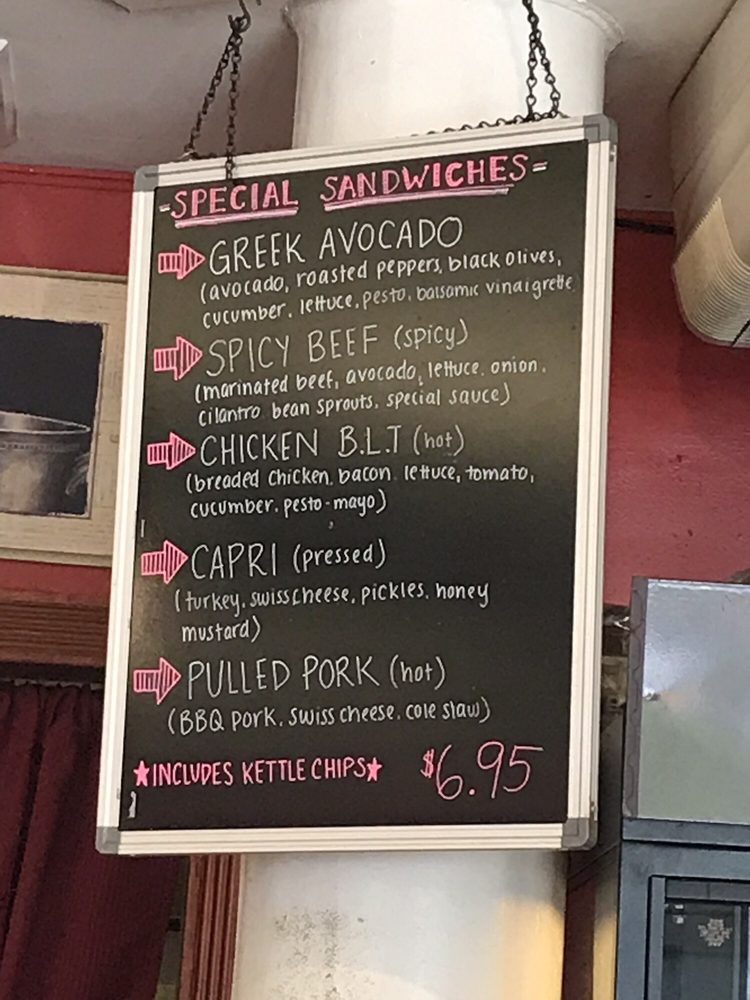 -SPECIAL SANDWICHES-
GREEK AVOCADO
(avocado, roasted peppers, black olives,
cucumber, lettuce, pesto, balsamic vinaigrette
SPICY BEEF (spicy)
(marinated beef, avocado, lettuce, onion,
cilantro bean sprouts, special sauce)
CHICKEN B.L.T (hot)
(breaded chicken, bacon lettuce, tomato,
cucumber, pesto-mayo)
CAPRI (pressed)
(turkey, swiss cheese, pickles, honey
mustard)
PULLED PORK (hot)
(BBQ pork, swiss cheese, cole slaw)
★INCLUDES KETTLE CHIPS★ $6.95